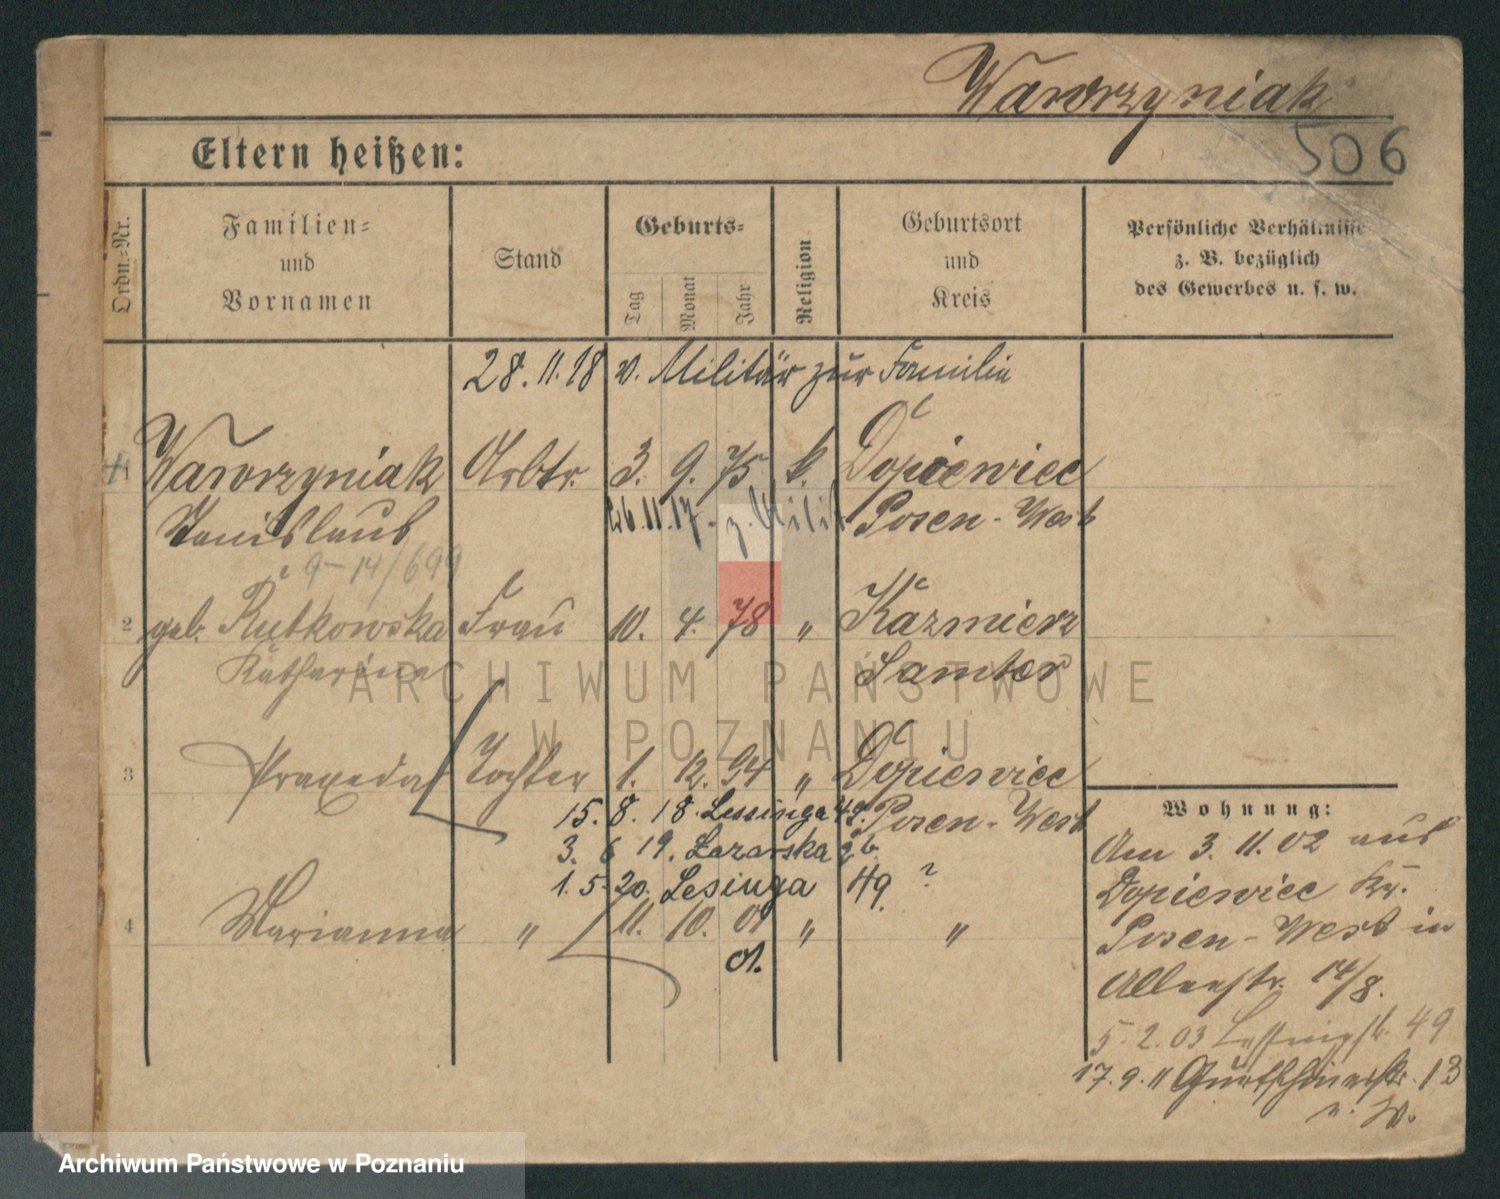 Wawrzyniak
506
Eltern heißen:
Ordn.-Nr.
Familien- und Vornamen
Stand
Geburts-
Tag
Monat
Jahr
Religion
Geburtsort und Kreis
Persönliche Verhältnisse z. B. bezüglich des Gewerbes u. s. w.
28. 11. 18 v. Militär zur Familie
1 Wawrzyniak Arbtr. 3. 9. 75 k. Dopiewiec
Stanislaus 11. 17. z. Milit Posen-West
9-14/699
2 geb. Rutkowska Frau 10. 4. 78 " Kazmierz
Katharina Samter
3 Praxeda Tochter 1. 12. 94 " Dopiewiec
15. 8. 18. Lessinga 49. Posen-West
3. 6 19. Lazarska
1. 5. 20. Lesinga 49. ?
4 Marianna " 11. 10. 01 " "
01.
Wohnung:
Am 3. 11. 02 aus
Dopiewiec Kr.
Posen-West in
Allenstr. 14/8.
5. 2. 03 Lessingstr. 49
17. 9. " 13
n. W.
ARCHIWUM PAŃSTWOWE
W POZNANIU
Archiwum Państwowe w Poznaniu